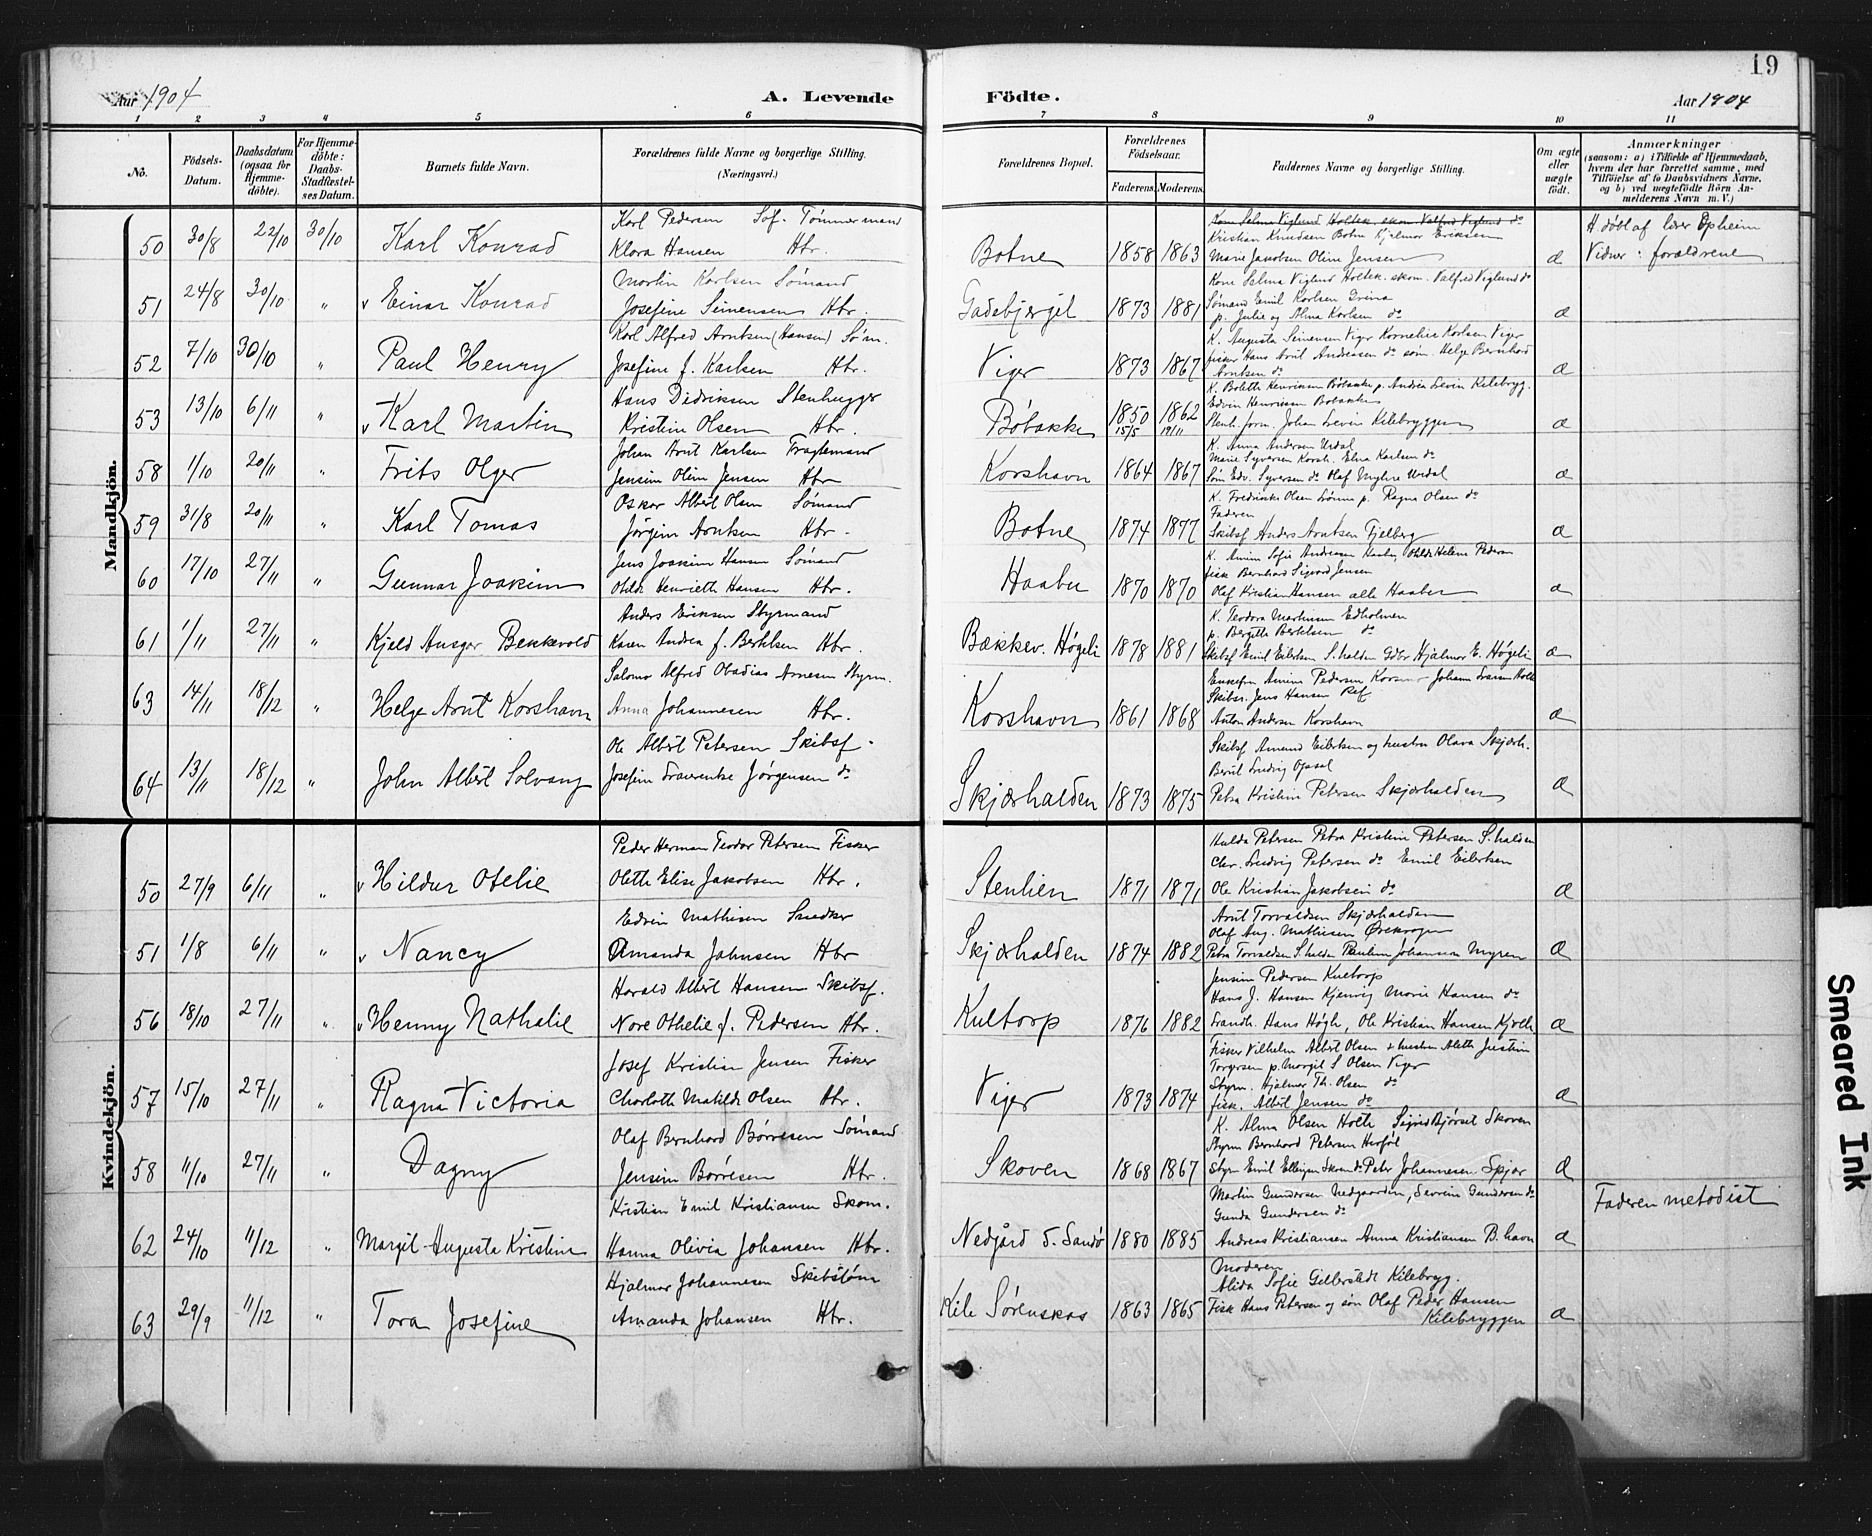 19
Aar 1904 A. Levende Födte. Aar 1904
1 2 3 4 5 6 7 8 9 10 11
No. Födsels-Datum. Daabsdatum (ogsaa for Hjemmedöbte). For Hjemmedöbte: Daabs-Stadfæstelses Datum. Barnets fulde Navn. Forældrenes fulde Navne og borgerlige Stilling. (Næringsvei.) Forældrenes Bopæl. Forældrenes Födselsaar. Faderens. Moderens. Faddernes Navne og borgerlige Stilling. Om ægte eller uægte födt. Anmærkninger (saasom: a) i Tilfælde af Hjemmedaab, hvem der har forrettet samme, med Tilföielse af to Daabsvidners Navne, og b) ved uægtefödte Börn Anmelderens Navn m. V.)
Mandkjön.
Karl Pedersen Søf. Tømmermand
50 30/8 22/10 30/10 Karl Konrad Klara Hansen Hbr. Botne 1858 1863 æ
Kristian Knudsen Botne Hjalmar Eriksen
Marie Jakobsen Oline Jensen
H.døbt af lærer Opheim
Vidner: forældrene
Martin Karlsen Sømand
51 24/8 30/10 " Einar Konrad Josefine Simensen Hbr. Gadebjerget 1873 1881 æ
Kone Selma Viglund Holtek. skom. Valfred Viglund do
Sømand Emil Karlsen Grina
p. Julie og Alma Karlsen do
Karl Alfred Arntsen (Hansen) Søm.
52 7/10 30/10 " Paul Henry Josefine f. Karlsen Hbr. Viger 1873 1867 æ
K. Augusta Simensen Viger Kornelie Karlsen Viger
fisker Hans Arnt Andreassen do søm. Helge Bernhard
Arntsen do
Hans Didriksen Stenhugger
53 13/10 6/11 " Karl Martin Kristine Olsen Hbr. Böbakke 1850 15/5 1862 19/11 æ
K. Bolette Henriksen Böbakke p. Andrea Levin Kilebryg.
Edvin Henriksen Bobakke
Stenh. form. Johan Levin Kilebryggen
Johan Arnt Karlsen Fragtemand
58 1/10 20/11 " Frits Olger Jensine Oline Jensen Hbr Korshavn 1864 1867 æ
K. Anna Andersen Urdal
Marie Syversen Korsh. Elna Karlsen do
Søm Edv. Syversen do Olaf Myhre Urdal
Oskar Albert Olsen Sømand
59 31/8 20/11 " Karl Tomas Jørgine Arntsen Hbr. Botne 1874 1877 æ
K. Fredrikke Olsen Lönne p. Ragna Olsen do
Faderen
Skibsf Anders Arntsen Fjelberg
Jens Joakim Hansen Sømand
60 17/10 27/11 " Gunnar Joakim Otilde Henriette Hansen Hbr. Haabu 1870 1870 æ
K. Amine Sofie Andreasen Haabu, Otilde Helene Pedersen
fisk Bernhard Sigvard Jensen
Olaf Kristian Hansen alle Haabu
Anders Eriksen Styrmand
61 1/11 27/11 " Kjeld Ansgar Bekkevold Karen Andrea f. Bertelsen Hbr. Bækkev. Høgeli 1878 1881 æ
K. Teodora Martinsen Edholmen
p. Bergitte Bertelsen do
Skibsf Emil Eilertsen S.halden Gdbr Hjalmar E. Høgeli
Salomo Alfred Obadias Arnesen Styrm.
63 14/11 18/12 " Helge Arnt Korshavn Anna Johannesen Hbr. Korshavn 1861 1868 æ
Enkefru Amine Pedersen
Skibsr. Jens Hansen Ref
Anton Andersen Korshavn
Ole Albert Petersen Skibsf.
64 13/11 18/12 " John Albert Solvang Josefine Laurentze Jørgensen do Skjærhalden 1873 1875 æ
Skibsf Amund Eilertsen og hustru Olava Skjærh.
Berut Ludvig Opsal
Petra Kristine Petersen Skjærhalden
Kvindekjön.
Peder Herman Teodor Petersen Fisker
50 27/9 6/11 " Hildur Otelie Olette Elise Jakobsen Hbr. Stenlien 1871 1871 æ
Hulda Petersen Petra Kristine Petersen S.halden
Chr. Ludvig Petersen do Emil Eilertsen
Ole Kristian Jakobsen do
Edvin Mathisen Snedker
51 1/8 6/11 " Nancy Amanda Johnsen Hbr Skjærhalden 1874 1882 æ
Arnt Torvaldsen Skjærhalden
Olaf Aug. Mathisen Ørekrogen
Petra Torvaldsen S.halden Pauline Johannesen Myren
Harald Albert Hansen Skibsf.
56 18/10 27/11 " Henny Nathalie Nore Othelie f. Pedersen Hbr. Kultorp 1876 1882 æ
Jensine Pedersen Kultorp
Hans J. Hansen Kjenvig Marie Hansen do
Landh. Hans Høgh, Ole Kristian Hansen
Josef Kristian Jensen Fisker
57 15/10 27/11 " Ragna Victoria Charlotte Matilde Olsen Hbr. Viger 1873 1874 æ
Fisker Vilhelm Albert Olsen & hustru Alette Justine
Torgersen p. Margit S Olsen Viger
Styrm. Hjalmar Th. Olsen do
fisk. Albert Jensen do
Olaf Bernhard Börresen Sömand
58 11/10 27/11 " Dagny Jensine Börresen Hbr. Skoven 1868 1867 æ
K. Alma Olsen Holte Sigrid Bjørset Skoven
Styrm Bernhard Petersen Herføl
Styrm Emil Ellingsen Skoven do Peter Johannesen Spjær
Kristian Emil Kristiansen Skom.
62 24/10 11/12 " Margit Augusta Kristine Hanna Olivia Johansen Hbr. Nedgård S. Sandø 1880 1885 æ
Martin Gundersen Nedgaarden, Severin Gundersen do
Gunda Gundersen do
Andreas Kristiansen Anna Kristiansen B.havn
Faderen metodist
Hjalmar Johannesen Skibstøm
63 29/9 11/12 " Tora Josefine Amanda Johansen Hbr. Kile Sørenskas 1863 1865 æ
Moderen
Alida Sofie Gellerstedt Kilebryg.
Fisk Hans Petersen og søn Olaf Peder Hansen
Kilebryggen
Smeared Ink